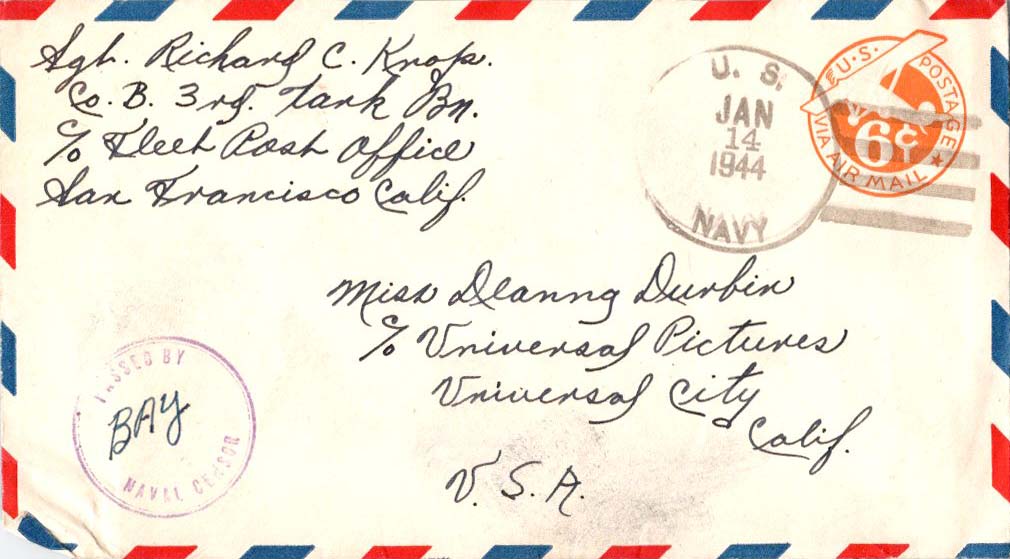 Sgt. Richard C. Knop.
Co. B. 3rd. Tank Bn.
c/o Fleet Post Office
San Francisco Calif.
U. S.
JAN
14
1944
NAVY
U.S. POSTAGE
6¢
VIA AIR MAIL
Miss Deanna Durbin
c/o Universal Pictures
Universal City
Calif.
U. S. A.
PASSED BY
BAY
NAVAL CENSOR